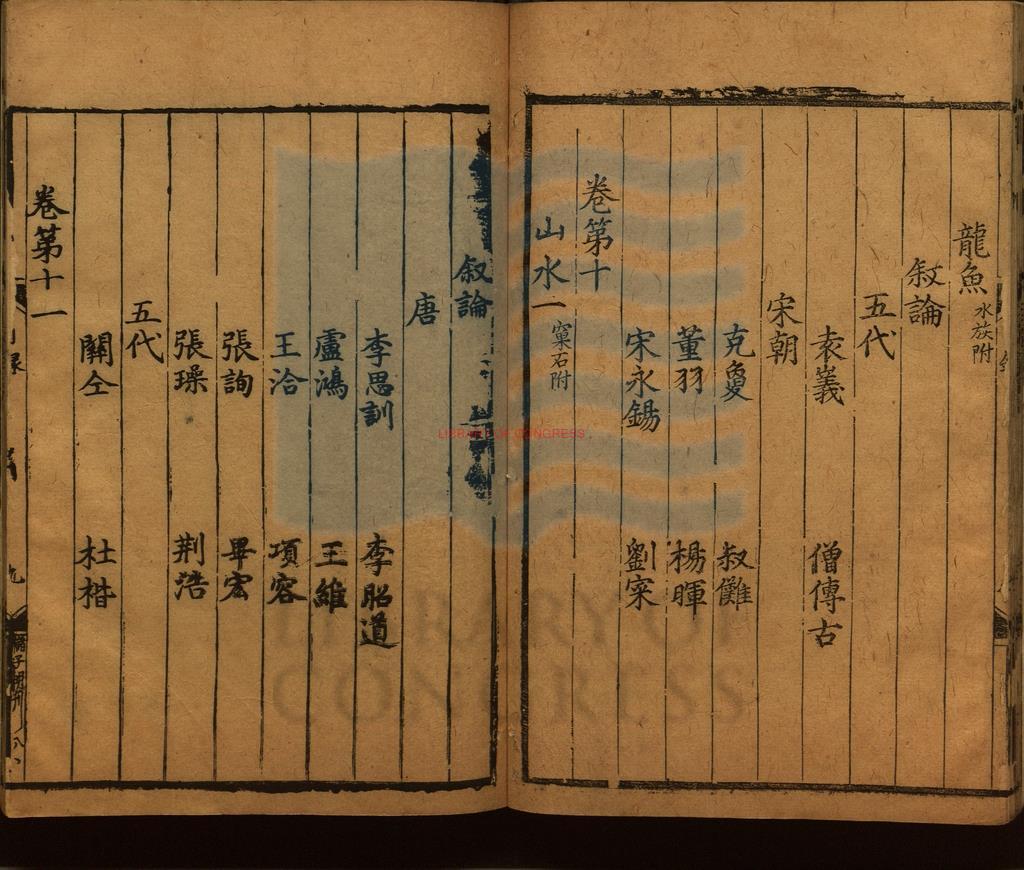 龍魚 水族附
叙論
五代
袁嶬 僧傳古
宋朝
克夐 叔儺
董羽 楊暉
宋永錫 劉寀
卷第十
山水一 窠石附
叙論
唐
李思訓 李昭道
盧鴻 王維
王洽 項容
張詢 畢宏
張璪 荆浩
五代
關仝 杜楷
卷第十一
LIBRARY OF CONGRESS
LIBRARY OF
CONGRESS